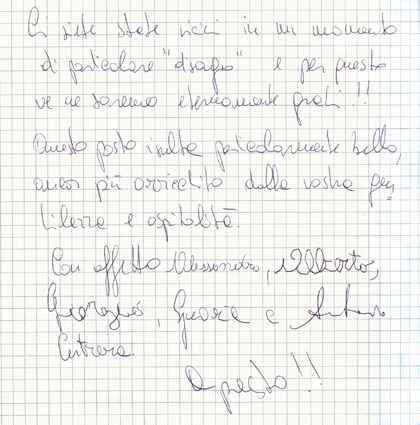 Ci siete state vicini in un momento
di particolare "disagio" e per questo
ve ne saremo eternamente grati!!!
Questo posto inoltre particolarmente bello,
ancor più arricchito dalla vostra gen
tilezza e ospitalità.
Con affetto Alessandro, Alberto,
Giorgio, e
A presto!!